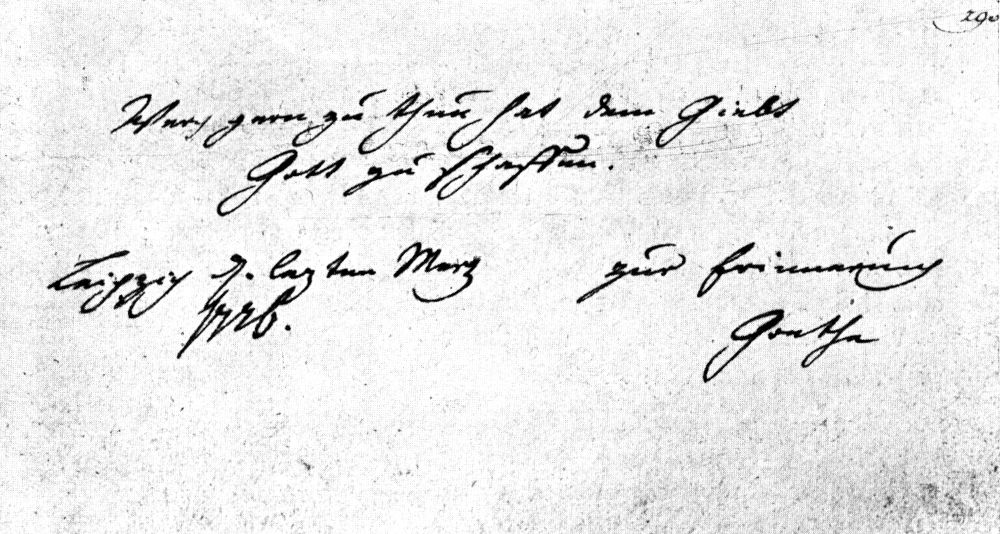 290
Wer gern zu thun hat dem Giebt
Gott zu schaffen.
Leipzig d. lezten Merz
1776.
zur Erinnerung
Goethe